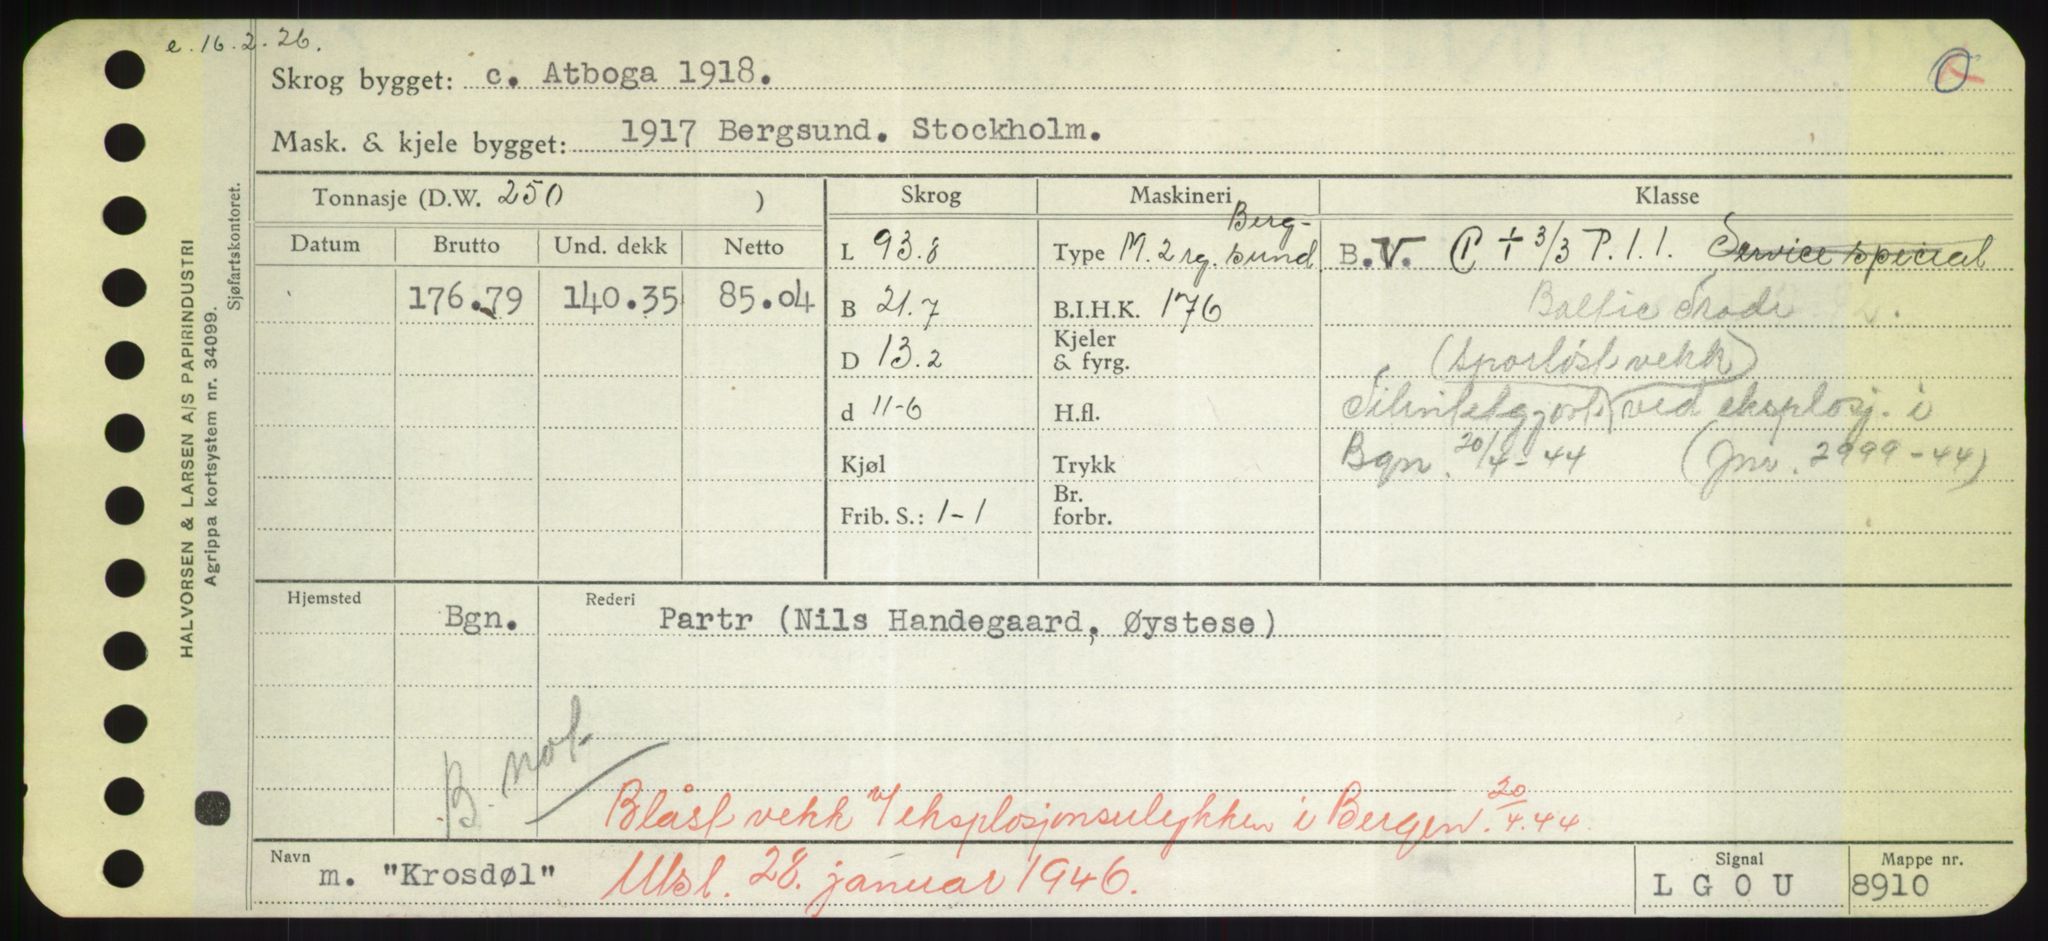 e. 16.2.26.
O
Skrog bygget: c. Atboga 1918.
Mask. & kjele bygget: 1917 Bergsund. Stockholm.
Tonnasje (D.W. 250 )
Skrog
Maskineri
Klasse
Datum
Brutto
Und. dekk
Netto
176.79
140.35
85.04
L 93.8
B 21.7
D 13.2
d 11-6
Kjøl
Frib. S.: 1-1
Berg-
Type M. 2 sg. sund.
B.I.H.K. 176
Kjeler
& fyrg.
H.fl.
Trykk
Br.
forbr.
B.V. + 3/3 P. 1. 1. Service special
Baltic Trade
(sporløst vekk)
Tilintetgjort ved eksplosj. i
Bgn. 20/4-44 (Jnr. 2999-44)
Hjemsted
Rederi
Bgn.
Partr (Nils Handegaard, Øystese)
B. not.
Blåst vekk v/ eksplosjonsulykken i Bergen. 20/4.44.
Navn
m. "Krosdøl"
Utsl. 28. januar 1946.
Signal
L G O U
Mappe nr.
8910
HALVORSEN & LARSEN A/S PAPIRINDUSTRI
Agrippa kortsystem nr. 34099.
Sjøfartskontoret.